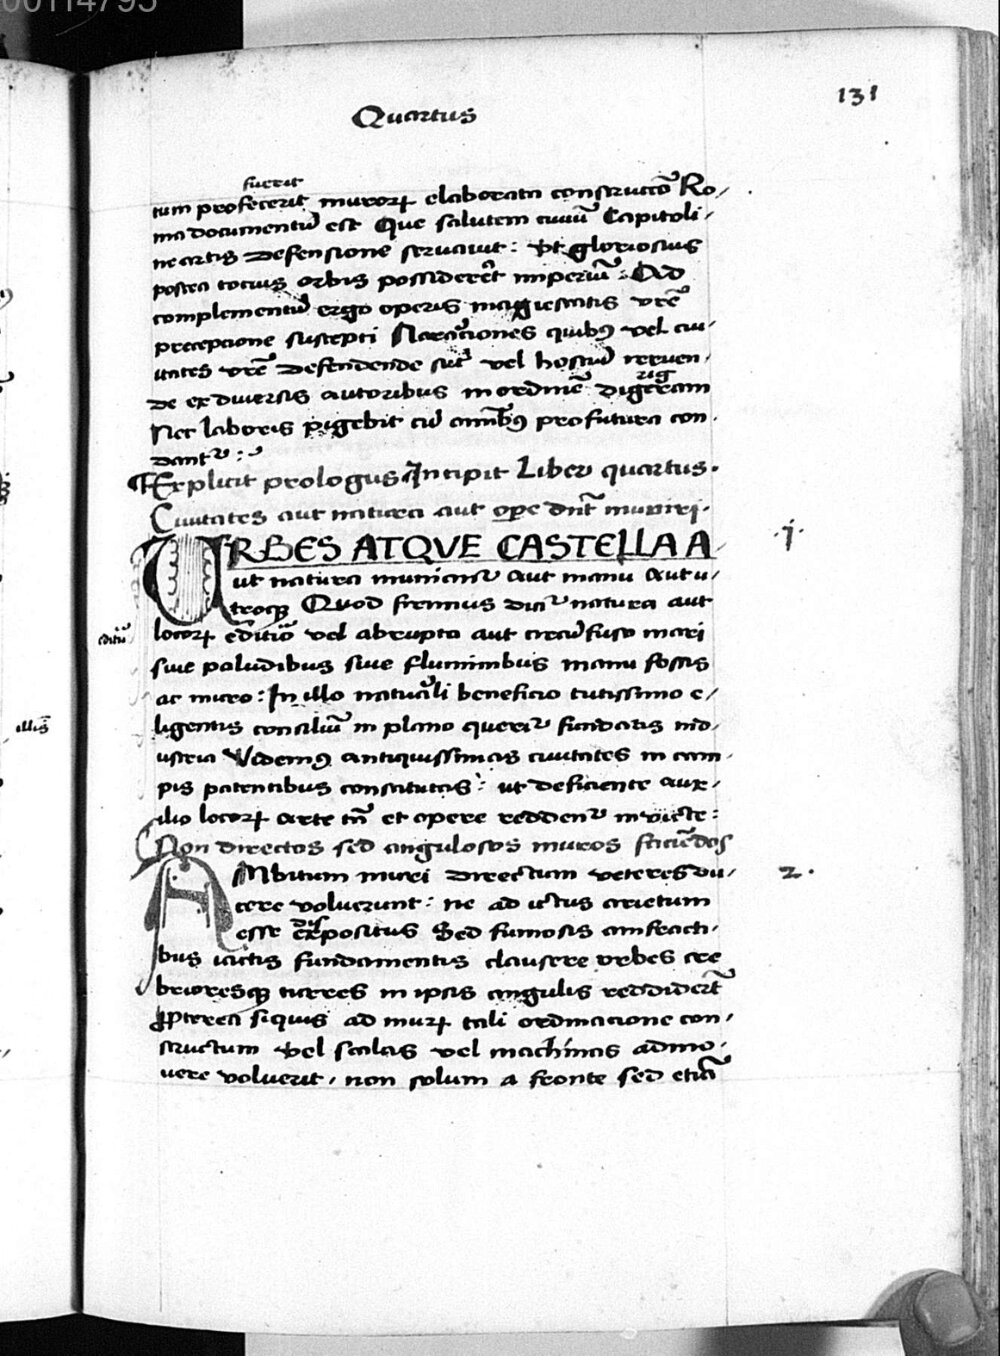 00114795
131
Quartus
fuerit
tum profecerit muroꝝ elaborata construccō Ro/
ma documentū est Que salutem ciuiū Capitoli/
ne artis defensione seruauit: vt gloriosius
postea totius orbis possiderēt imperiū: Ad
complementū ergo operis magiestatis vrē
precepcione suscepti Naracciones quibꝰ vel ciu/
itates vrē defendende sūt vel hostiū reruen/
rig
de ex diuersis autoribus in ordinē digeram
Nec laboris pigebit cū omībꝰ profutura con/
dantᵘʳ :
Explicit prologus Incipit Liber quartus.
Ciuitates aut natura aut oꝑe dn̄t muniri.
VRBES ATQVE CASTELLA A
.j.
ut natura muniantᵘʳ aut manu aut u/
troqꝫ Quod firmius diciᵗᵘʳ natura aut
locoꝝ editiō vel abrupta aut circūfuso mari
editiō
siue paludibus siue fluminibus manu fossis
ac muro: In illo naturali beneficio tutissimo e/
ligentis consiliū in plano queriᵗᵘʳ fundatis ind/
illis
ustria Videmꝰ antiquissimas ciuitates in cam/
pis patentibus constitutas: ut deficiente aux/
ilio locoꝝ arte tn̄ et opere reddenᵗᵘʳ inuicte:
Non directos sed angulosos muros faciēdos
AMbitum muri directum veteres du/
2.
cere voluerunt: ne ad ictus arietum
dis
esse expositus Sed fumosis amfracti/
bus iactis fundamentis clausere vrbes cre
brioresqꝫ turres in ipsis angulis reddiderūt
Propterea siquis ad murꝝ tali ordinacione con/
structum vel scalas vel machinas admo/
uere voluerit, non solum a fronte sed etiā